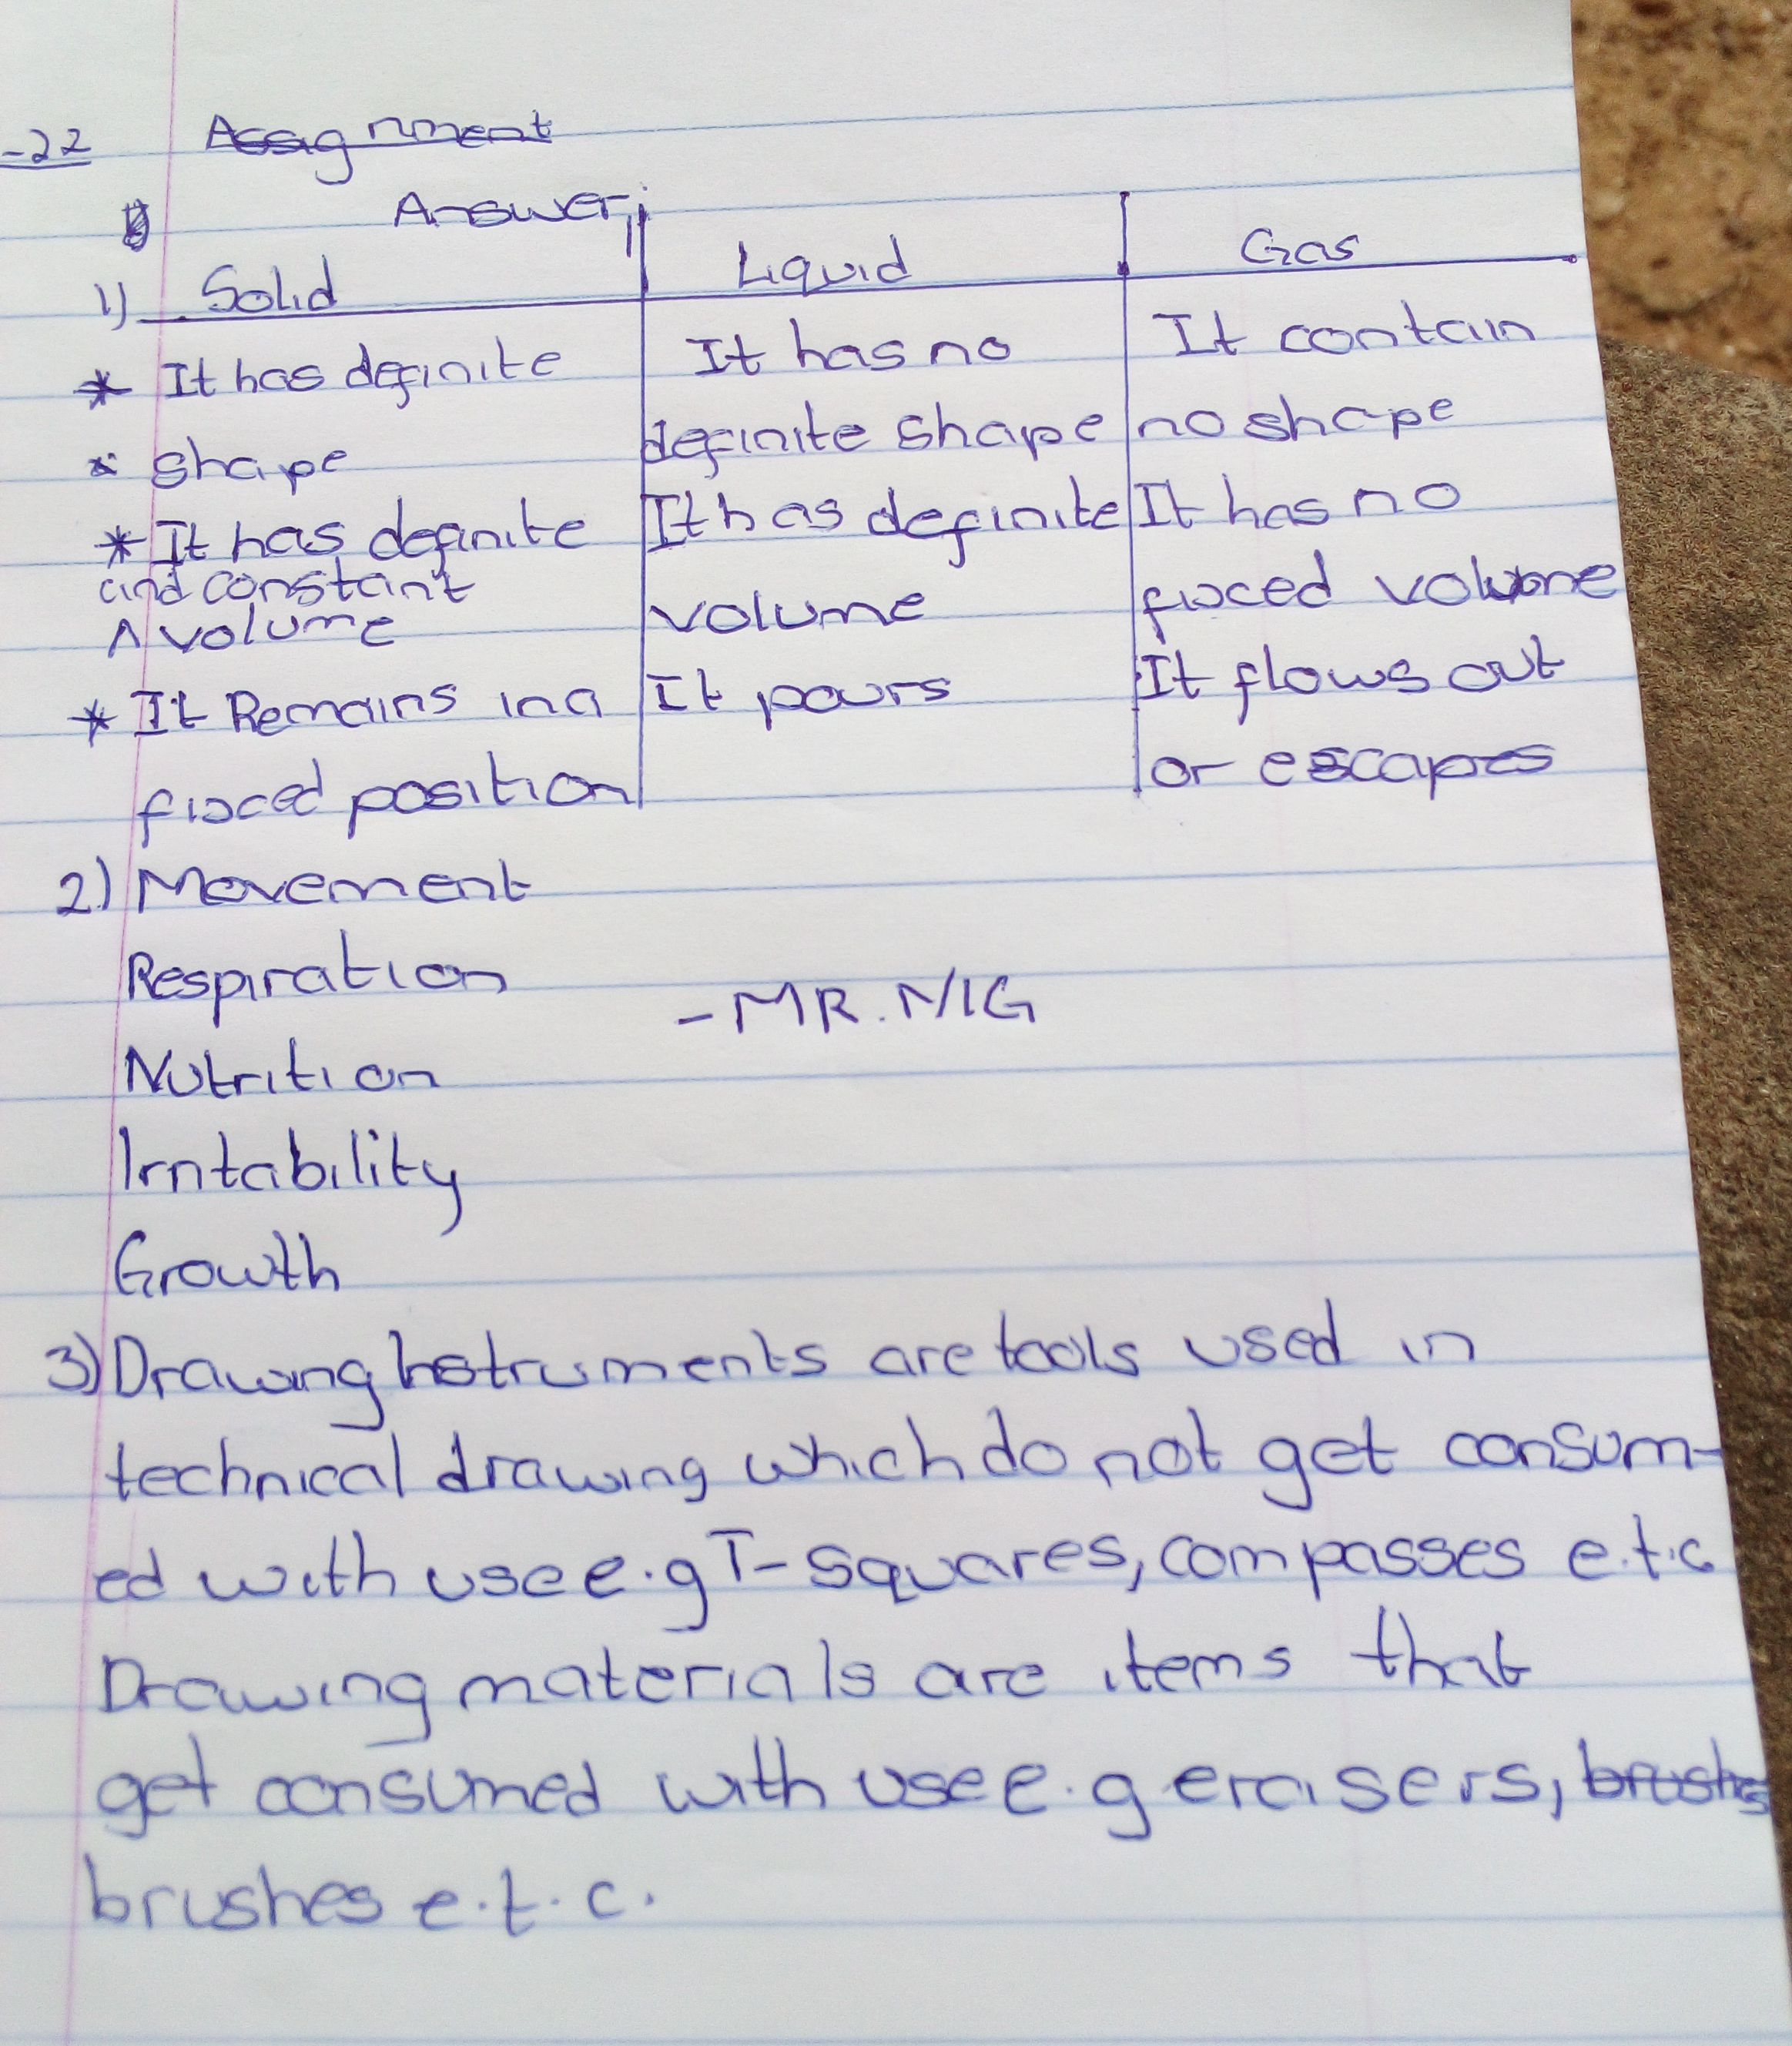 -22 Assignment
Answer
1) Solid Liquid Gas
* It has definite It has no It contain
* shape definite shape no shape
* It has definite It has definite It has no
and constant
^ volume volume fixed volume
* It Remains in a It pours It flows out
fixed position or escapes
2) Movement
Respiration
- MR. NIG
Nutrition
Irritability
Growth
3) Drawing Instruments are tools used in
technical drawing which do not get consum-
ed with use e.g T-squares, compasses e.t.c
Drawing materials are items that
get consumed with use e.g erasers, brushes
brushes e.t.c.